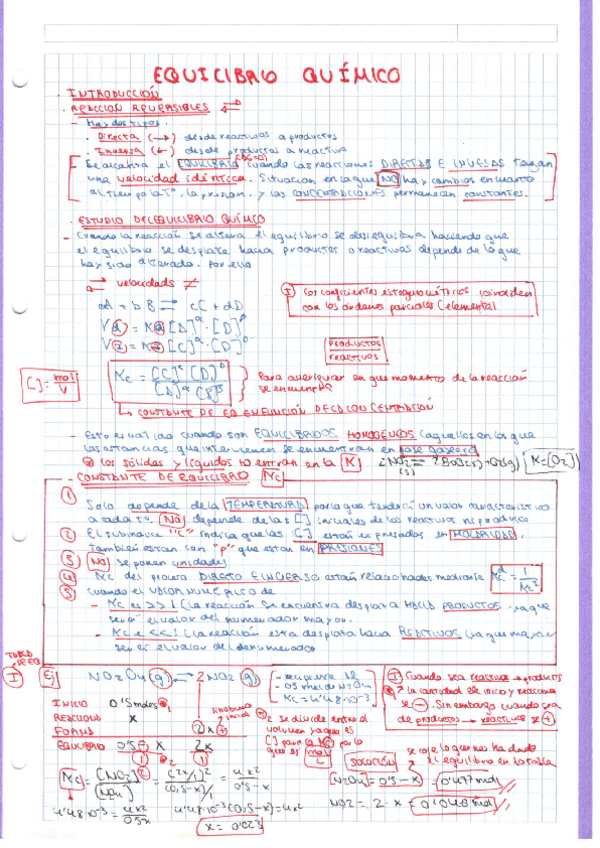 EQUILIBRIO QUÍMICO
INTRODUCCIÓN
REACCION REVERSIBLES ⇄
- Hay dos tipos.
· Directa (→) desde reactivos a productos
· Inversa (←) desde productos a reactivo
Se alcanza el EQUILIBRIO (ΔG=0) cuando las reacciones DIRECTAS E INVERSAS tengan
una velocidad idéntica. Situacion en la que NO hay cambios en cuanto
al tiempo la Tª, la presion, y las CONCENTRACIONES permanecen constantes.
· ESTUDIO DEL EQUILIBRIO QUÍMICO
- Cuando la reacción se altera el equilibrio se desequilibra haciendo que
el equilibrio se desplace hacia productos o reactivos depende de lo que
haya sido alterado. Por ello
⇄ velocidades ≠
aA + bB ⇄ cC + dD
Los coeficientes estequiométricos coinciden
con los ordenes parciales (elemental
PRODUCTOS
REACTIVOS
[ ] = mol/V
Para averiguar en que momento de la reacción
se encuentre
↳ CONSTANTE DE EQ EN FUNCIÓN DE CONCENTRACIÓN
- Esto es valido cuando son EQUILIBRADOS HOMOGENEOS (aquellos en los que
las sustancias que intervienen se encuentran en fase gaseosa
los sólidos y líquidos no entran en la K
K=[O2]
- CONSTANTE DE EQUILIBRIO Kc
1 Solo depende de la TEMPERATURA por lo que tendrá un valor característico
a cada Tª. NO depende de las [ ] iniciales de los reactivos ni producto
2 El subindice "c" indica que las [ ] estan expresados en MOLARIDAD,
tambien estan con "p" que estan en PRESIONES
3 NO se ponen unidades
4 Kc del proceso DIRECTO E INVERSO están relacionados mediante Kc^d = 1/Kc^i
5 cuando el VALOR NUMÉRICO de
- Kc es >>1 (la reacción se encuentra desplazada HACIA PRODUCTOS. ya que
sería el valor del numerador mayor.
- Kc es <<1 (la reaccion esta desplazada hacia REACTIVOS (ya que mayor
ser es el valor del denominador
TABLA
I Ej N2O4(g) → 2NO2(g)
- 0'5 mol de N2O4
Kc = 4'48·10⁻³
INICIO 0'5 moles
REACCIONA x
FORMAN 2x
EQUILIBRIO 0'5-x 2x
se divide entre el
volumen ya que es
[ ] para la Kc por lo
que es mol/L
Cuando sea reactivos → productos
la cantidad de inicio y reacciona
se −. Sin embargo cuando sea
de productos → reactivos se +
se coje lo que nos ha dado
el equilibrio en la tabla
SOLUCIÓN
Kc = [NO2]²/[N2O4] = (2x/1)²/(0,5-x)/1 = 4x²/0'5-x
4'48·10⁻³ = 4x²/0'5-x
4'48·10⁻³(0,5-x)=4x²
x = 0'023
[N2O4] = 0'5-x = 0'477 mol
NO2 = 2·x = 0'046 mol